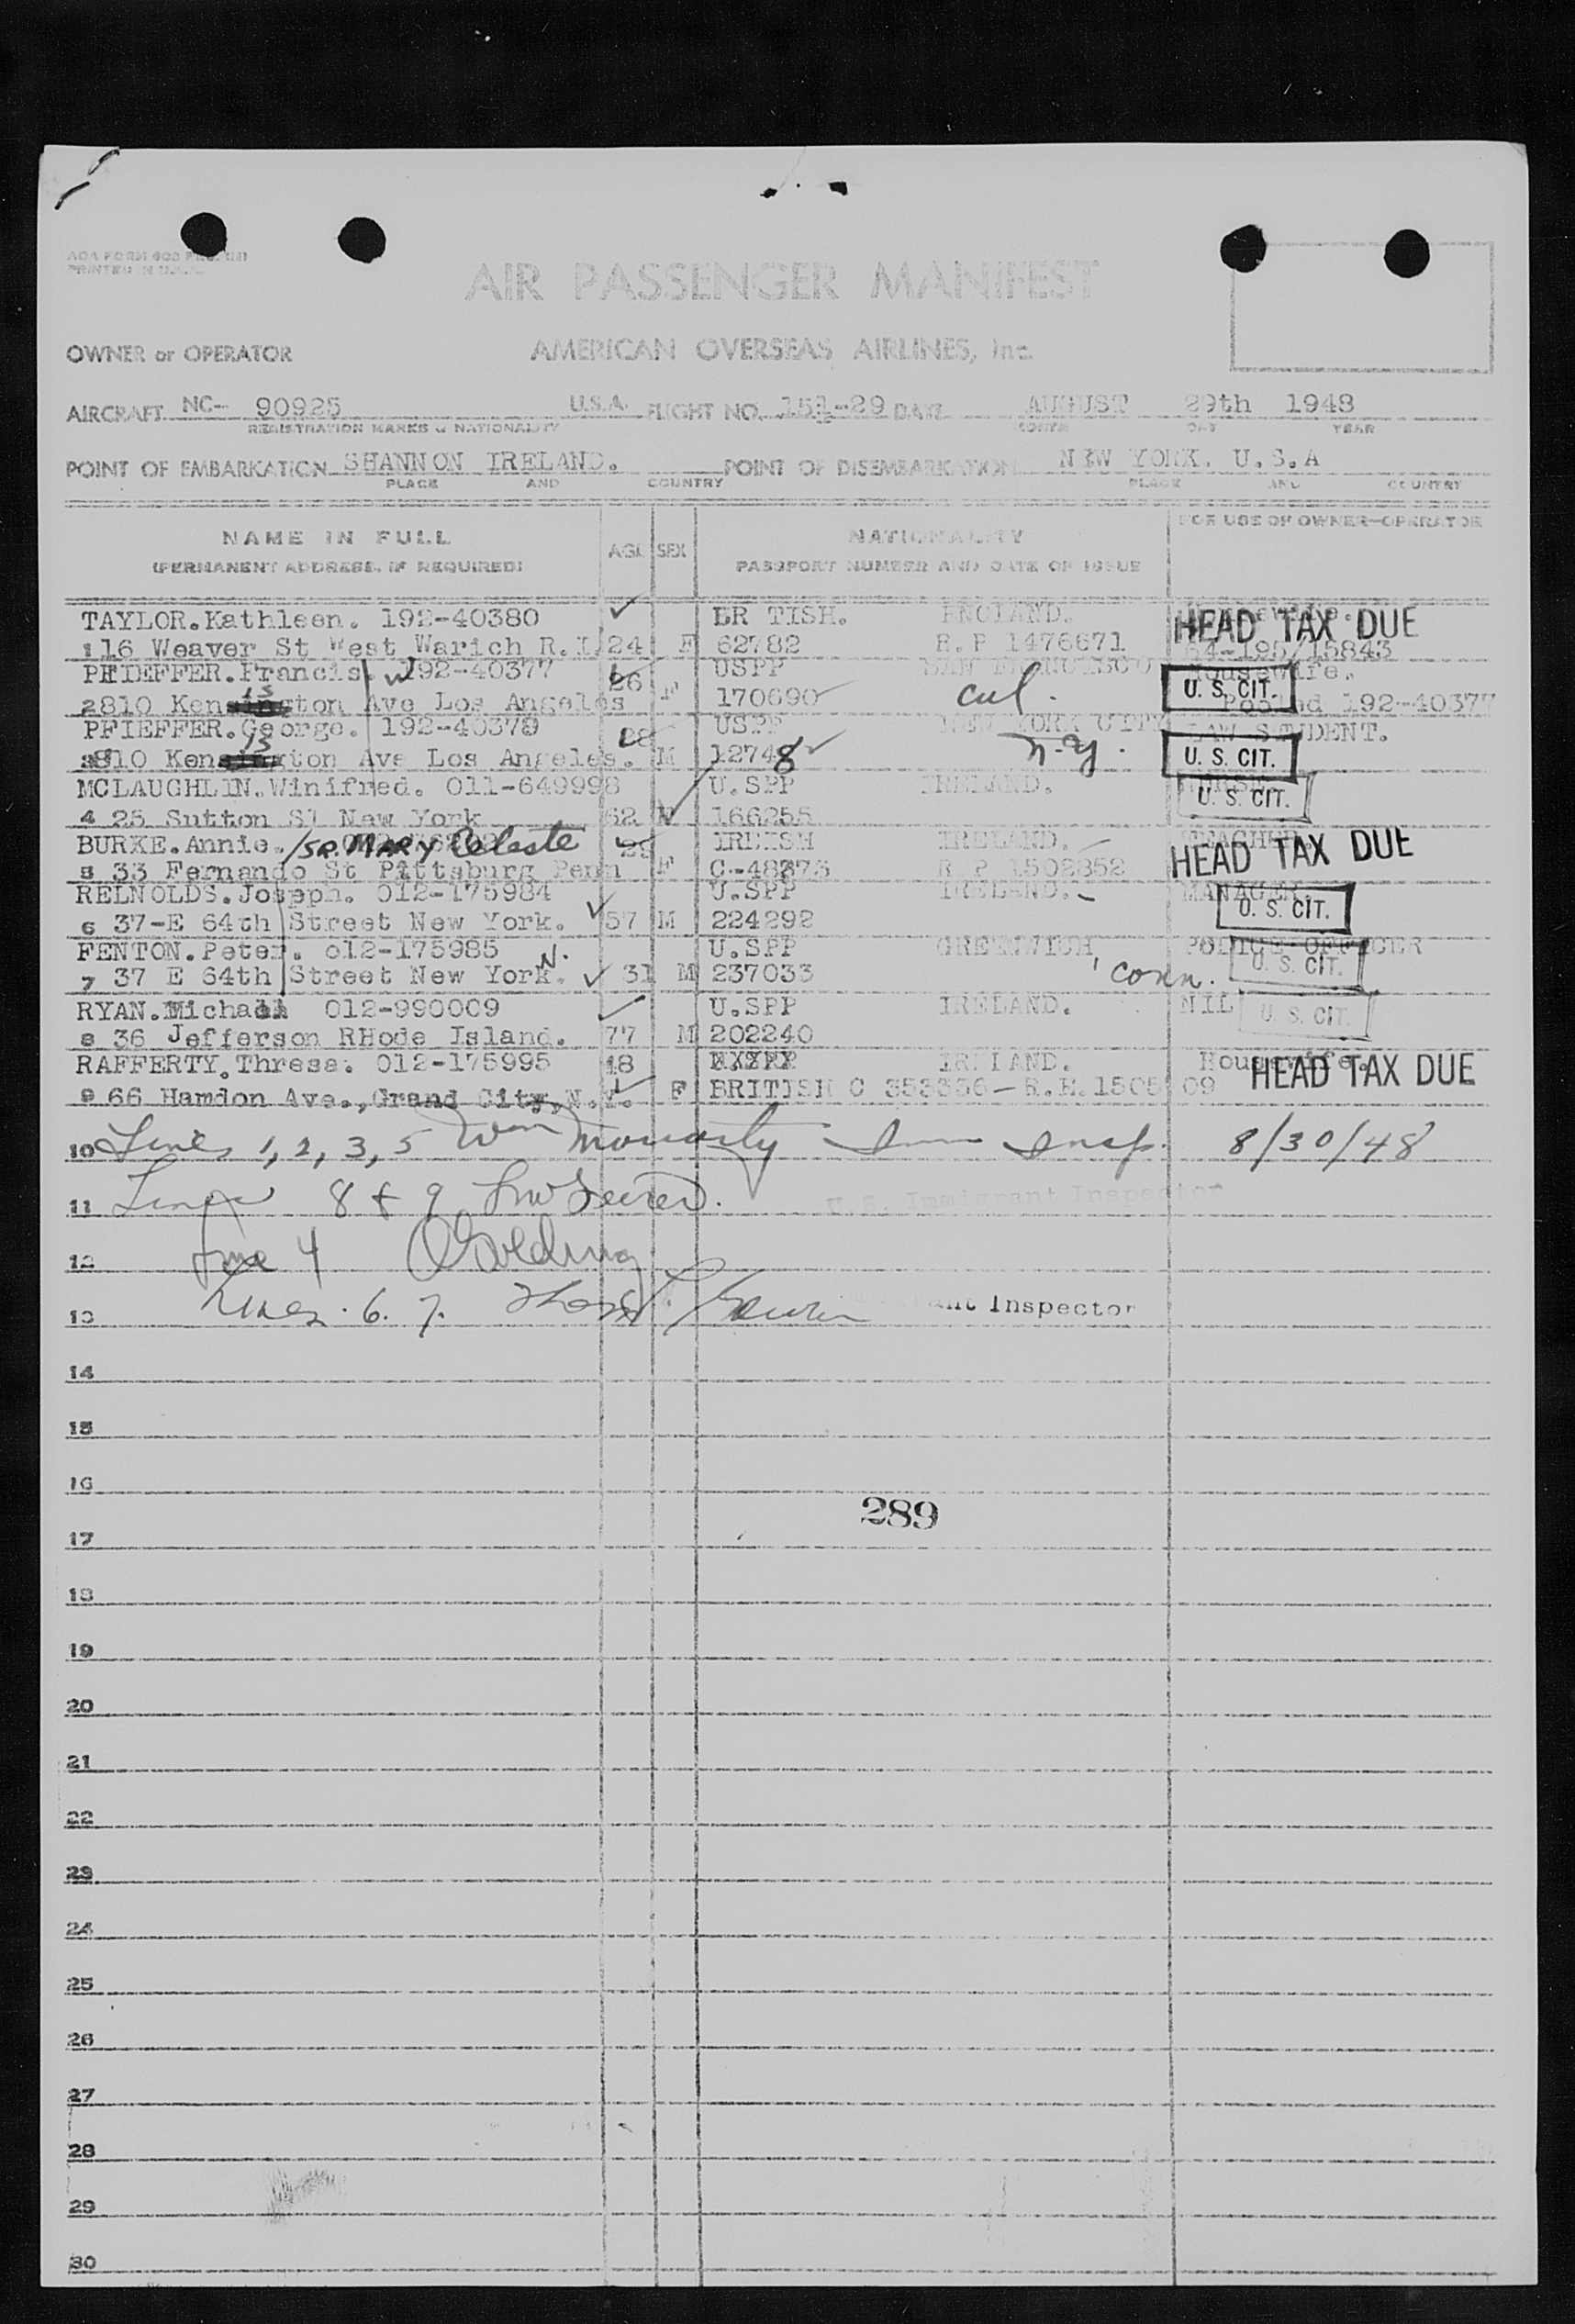 PRINTED IN U.S.A.
AIR PASSENGER MANIFEST
OWNER or OPERATOR AMERICAN OVERSEAS AIRLINES, Inc.
AIRCRAFT NC- 90925 U.S.A. FLIGHT NO. 151-29 DATE AUGUST 29th 1948
REGISTRATION MARKS & NATIONALITY MONTH DAY YEAR
POINT OF EMBARKATION SHANNON IRELAND. POINT OF DISEMBARKATION NEW YORK. U.S.A
PLACE AND COUNTRY PLACE AND COUNTRY
NAME IN FULL AGE SEX NATIONALITY FOR USE OF OWNER-OPERATOR
(PERMANENT ADDRESS, IF REQUIRED) PASSPORT NUMBER AND DATE OF ISSUE
TAYLOR.Kathleen. 192-40380 BR TISH. ENGLAND. HEAD TAX DUE
1 16 Weaver St West Warich R.I. 24 F 62782 R.P 1476671 64-195/15843
PFIEFFER.Francis. 192-40377 26 F USPP SAN FRANCISCO Housewife.
2 810 Kenton Ave Los Angeles 170690 Cal. U. S. CIT. 192-40377
PFIEFFER.George. 192-40379 28 USPP NEW YORK CITY LAW STUDENT.
3 810 Kenton Ave Los Angeles. M 12748 N.Y. U. S. CIT.
MCLAUGHLIN.Winifred. 011-649998 U.SPP IRELAND.
4 25 Sutton St New York 62 166255 U. S. CIT.
BURKE.Annie. /SR. MARY Celeste IRISH IRELAND. TEACHER.
5 33 Fernando St Pittsburg Penn F C-48373 R P 1502852 HEAD TAX DUE
RELNOLDS.Joseph. 012-175984 U.SPP IRELAND. MANAGER.
6 37-E 64th Street New York. 57 M 224292 U. S. CIT.
FENTON.Peter. 012-175985 U.SPP GREENWICH, POLICE OFFICER
7 37 E 64th Street New York. N. 31 M 237033 Conn. U. S. CIT.
RYAN.Michael 012-990009 U.SPP IRELAND. NIL U. S. CIT.
8 36 Jefferson RHode Island. 77 M 202240
RAFFERTY.Thresa. 012-175995 18 IRELAND. Housewife. HEAD TAX DUE
9 66 Hamdon Ave.,Grand City,N.Y. F BRITISH C 353336- R.E.1505 09
10 Lines 1, 2, 3, 5 Wm Moriarty Imm Insp. 8/30/48
11 Lines 8 & 9 U.S. Immigrant Inspector
12 Line 4 Golding
13 Lines. 6. 7. Inspector
14
15
16
289
17
18
19
20
21
22
23
24
25
26
27
28
29
30